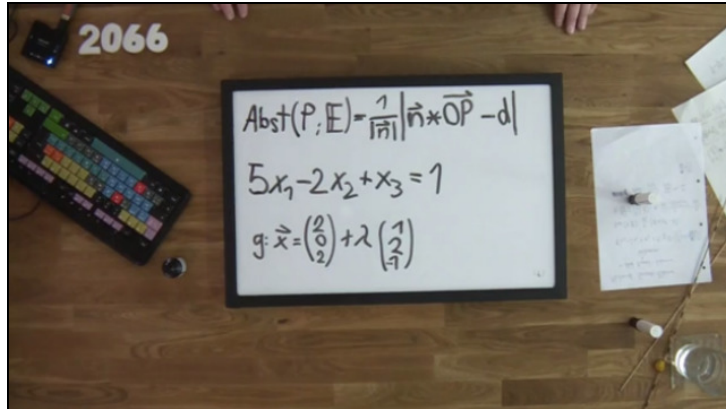 2066
Abst(P; E) = 1/|n⃗| |n⃗ * OP⃗ - d|
5x₁ - 2x₂ + x₃ = 1
g: x⃗ = (2 0 2) + λ (1 2 -1)